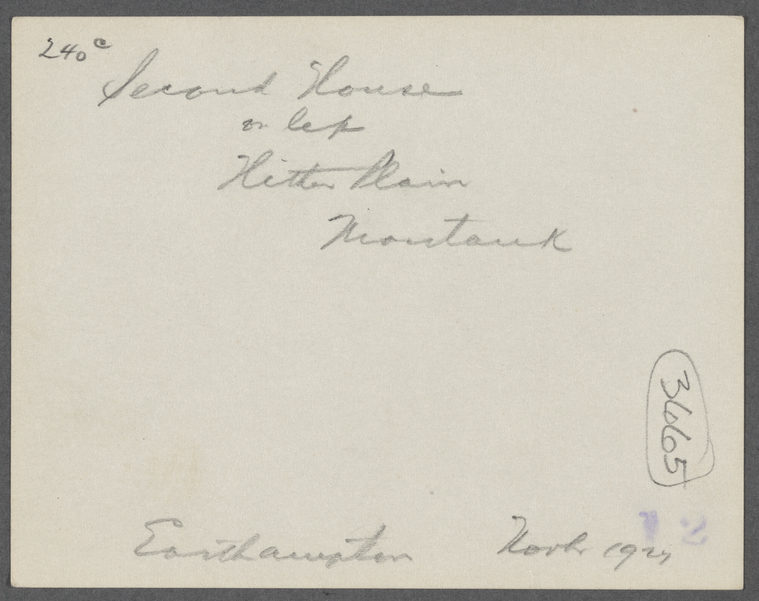 240c
Second House
on left
Hither Plain
Montauk
3665
12
Easthampton Novbr 192